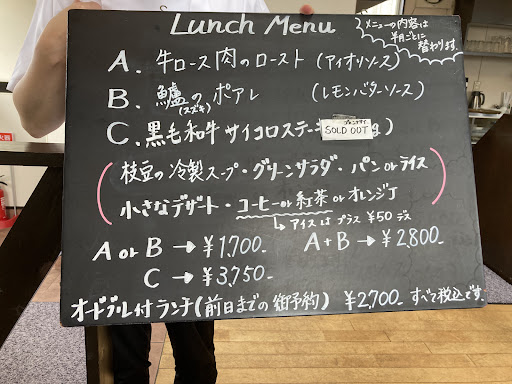 Lunch Menu
メニューの内容は
半月ごとに
替わります。
A. 牛ロース肉のロースト (アイオリソース)
B. 鱸のポアレ (レモンバターソース)
(スズキ)
C. 黒毛和牛サイコロステーキ
SOLD OUT
枝豆の冷製スープ・グリーンサラダ・パンorライス
小さなデザート・コーヒーor紅茶orオレンジJ
アイスは プラス ¥50 デス
A or B → ¥1,700- A+B → ¥2,800-
C → ¥3,750-
オードブル付ランチ(前日までの御予約) ¥2,700- すべて税込です。